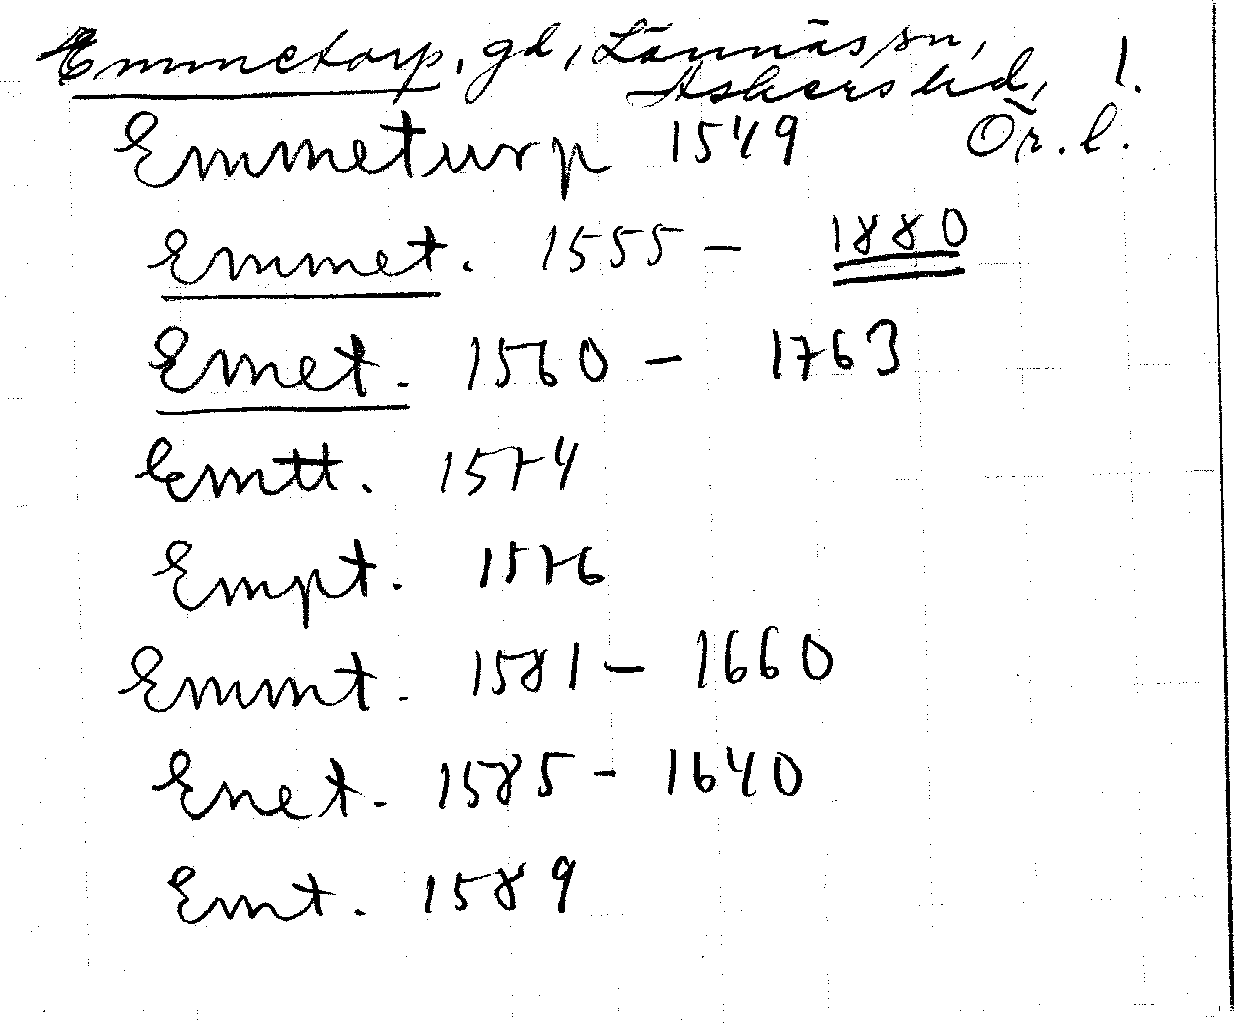 Emmetorp, gd, Lännäs sn, 1.
Askers hd,
Ör. l.
Emmeturp 1549
Emmet. 1555 - 1880
Emet. 1560 - 1763
Emtt. 1574
Empt. 1576
Emmt. 1581 - 1660
Enet. 1585 - 1640
Emt. 1589